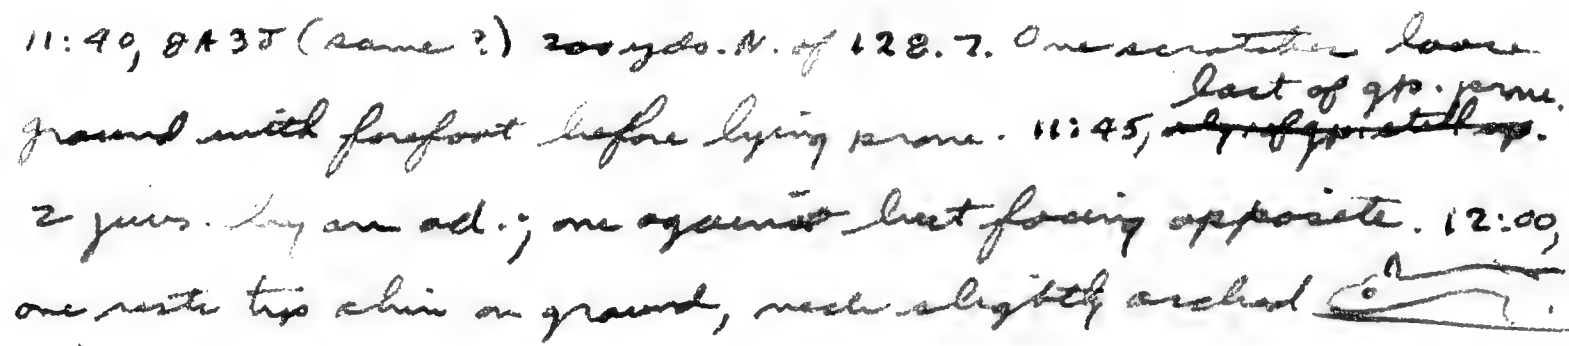 11:40, 8A3J (same?) 200 yds. N. of 128.7. One scratches loose
ground with forefoot before lying prone. 11:45, last of gp. prone.
2 juvs. by an ad.; one against but facing opposite. 12:00,
one rests tip chin on ground, neck slightly arched